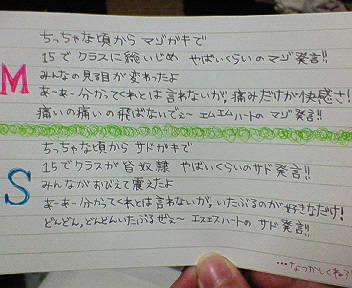 M
ちっちゃな頃から マゾガキで
15でクラスに総いじめ やばいくらいのマゾ発言!!
みんなの見る目が変わったよ
あーあー分かってくれとは言わないが、痛みだけが快感さ!
痛いの痛いの飛ばないでぇ〜 エムエムハートの マゾ発言!!
S
ちっちゃな頃から サドガキで
15でクラスが皆奴隷 やばいくらいのサド発言!!
みんながおびえて震えたよ
あーあー分かってくれとは言わないが、いたぶるのが好きなだけ!
どんどん、どんどんいたぶるぜぇ〜 エスエスハートの サド発言!!
...なつかしくね?